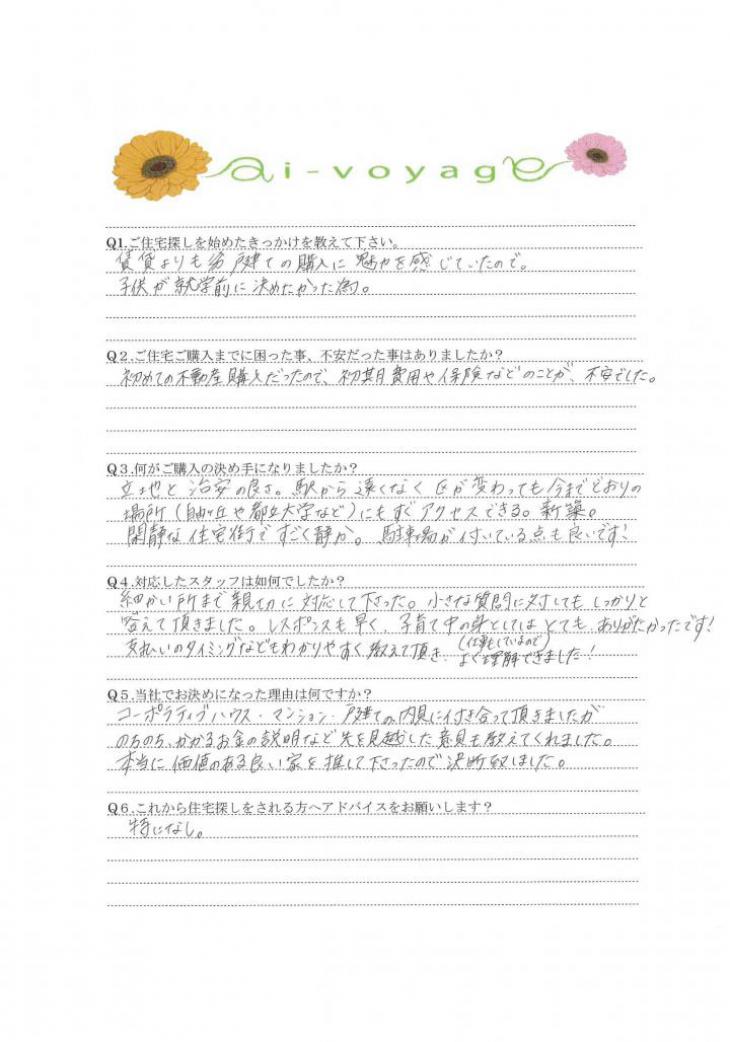 ai-voyage
Q1.ご住宅探しを始めたきっかけを教えて下さい。
賃貸よりも 戸建ての購入に魅力を感じていたので。
子供が就学前に決めたかった為。
Q2.ご住宅ご購入までに困った事、不安だった事はありましたか?
初めての不動産購入だったので、初期費用や保険などのことが、不安でした。
Q3.何がご購入の決め手になりましたか?
立地と治安の良さ。駅から遠くなく区が変わっても今までどおりの
場所(自由ヶ丘や都立大学など)にもすぐアクセスできる。新築。
閑静な住宅街ですごく静か。駐車場が付いている点も良いです!
Q4.対応したスタッフは如何でしたか?
細かい所まで親切に対応して下さった。小さな質問に対しても しっかりと
答えて頂きました。レスポンスも早く、子育て中の身としては とても、ありがたかったです!
(仕事もしているので)
支払いのタイミングなどもわかりやすく教えて頂き、よく理解できました!
Q5.当社でお決めになった理由は何ですか?
コーポラティブハウス・マンション・戸建ての内見に付き合って頂きましたが
のちのち、かかるお金の説明など先を見越した意見も教えてくれました。
本当に価値のある良い家を推して下さったので決断致しました。
Q6.これから住宅探しをされる方へアドバイスをお願いします?
特になし。